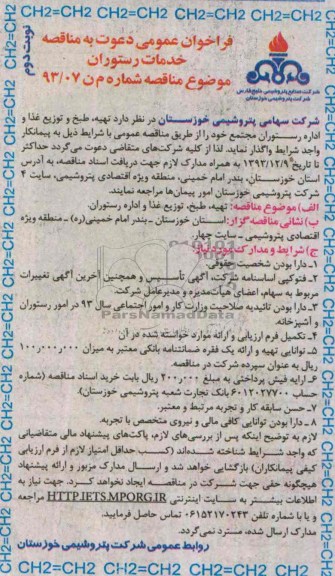 نوبت دوم
فراخوان عمومی دعوت به مناقصه
خدمات رستوران
موضوع مناقصه شماره م ن ۹۳/۰۷
شرکت صنایع پتروشیمی خلیج فارس
شرکت پتروشیمی خوزستان
شرکت سهامی پتروشیمی خوزستان در نظر دارد تهیه، طبخ و توزیع غذا و
اداره رستوران مجتمع خود را از طریق مناقصه عمومی با شرایط ذیل به پیمانکار
واجد شرایط واگذار نماید. لذا از کلیه شرکت‌های متقاضی دعوت می‌گردد حداکثر
تا تاریخ ۱۳۹۳/۱۲/۹ به همراه مدارک لازم جهت دریافت اسناد مناقصه، به آدرس
استان خوزستان، بندر امام خمینی، منطقه ویژه اقتصادی پتروشیمی، سایت ۴
شرکت پتروشیمی خوزستان امور پیمان‌ها مراجعه نمایند.
الف) موضوع مناقصه: تهیه، طبخ، توزیع غذا و اداره رستوران.
ب) نشانی مناقصه گزار: استان خوزستان ـ بندر امام خمینی(ره) ـ منطقه ویژه
اقتصادی پتروشیمی ـ سایت چهار.
ج) شرایط و مدارک مورد نیاز:
۱ـ دارا بودن شخصیت حقوقی
۲ـ فتوکپی اساسنامه شرکت، آگهی تأسیس و همچنین آخرین آگهی تغییرات
مربوط به سهام، اعضای هیأت‌مدیره و مدیرعامل شرکت.
۳ـ دارا بودن تائیدیه صلاحیت وزارت کار و امور اجتماعی سال ۹۳ در امور رستوران
و آشپزخانه.
ParsNamadData
۴ـ تکمیل فرم ارزیابی و ارائه موارد خواسته شده در آن
۵ـ توانایی تهیه و ارائه یک فقره ضمانتنامه بانکی معتبر به میزان ۱۰۰٬۰۰۰٬۰۰۰
ریال به عنوان سپرده شرکت در مناقصه.
۶ـ ارایه فیش پرداختی به مبلغ ۲۰۰٬۰۰۰ ریال بابت خرید اسناد مناقصه (شماره
حساب ۶۰۱۲۰۲۷۷۰۰ بانک تجارت شعبه پتروشیمی خوزستان).
۷ـ حسن سابقه کار و تجربه مرتبط و معتبر.
۸ـ دارا بودن توانایی کافی مالی و نیروی متخصص با تجربه.
لازم به توضیح اینکه پس از بررسی‌های لازم، پاکت‌های پیشنهاد مالی متقاضیانی
که واجد شرایط شناخته شده‌اند (کسب حداقل امتیاز لازم از فرم ارزیابی
کیفی پیمانکاران) بازگشایی خواهد شد و ارسال مدارک مزبور و ارائه پیشنهاد
هیچگونه حقی جهت شرکت در مناقصه ایجاد نخواهد کرد. جهت نیاز به
اطلاعات بیشتر به سایت اینترنتی HTTP.IETS.MPORG.IR مراجعه
و یا با شماره تلفن ۰۶۱۵۲۱۷۰۲۴۳ تماس حاصل فرمایید.
مدارک ارسال شده، مسترد نمی‌گردد.
روابط عمومی شرکت پتروشیمی خوزستان